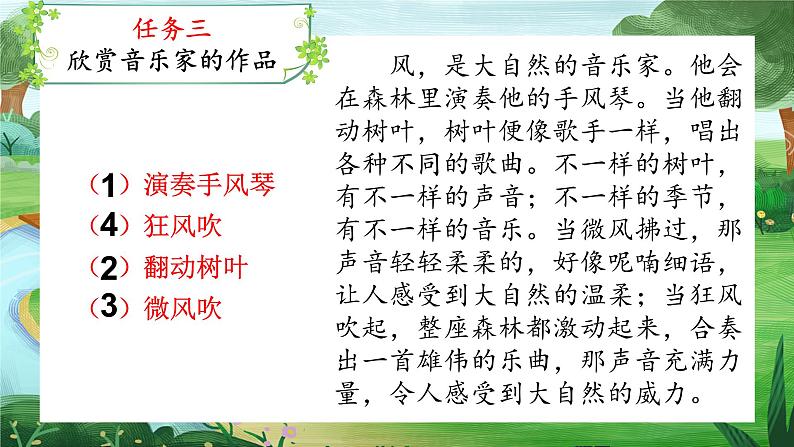 任务三
欣赏音乐家的作品
（1）演奏手风琴
（4）狂风吹
（2）翻动树叶
（3）微风吹
风，是大自然的音乐家。他会
在森林里演奏他的手风琴。当他翻
动树叶，树叶便像歌手一样，唱出
各种不同的歌曲。不一样的树叶，
有不一样的声音；不一样的季节，
有不一样的音乐。当微风拂过，那
声音轻轻柔柔的，好像呢喃细语，
让人感受到大自然的温柔；当狂风
吹起，整座森林都激动起来，合奏
出一首雄伟的乐曲，那声音充满力
量，令人感受到大自然的威力。